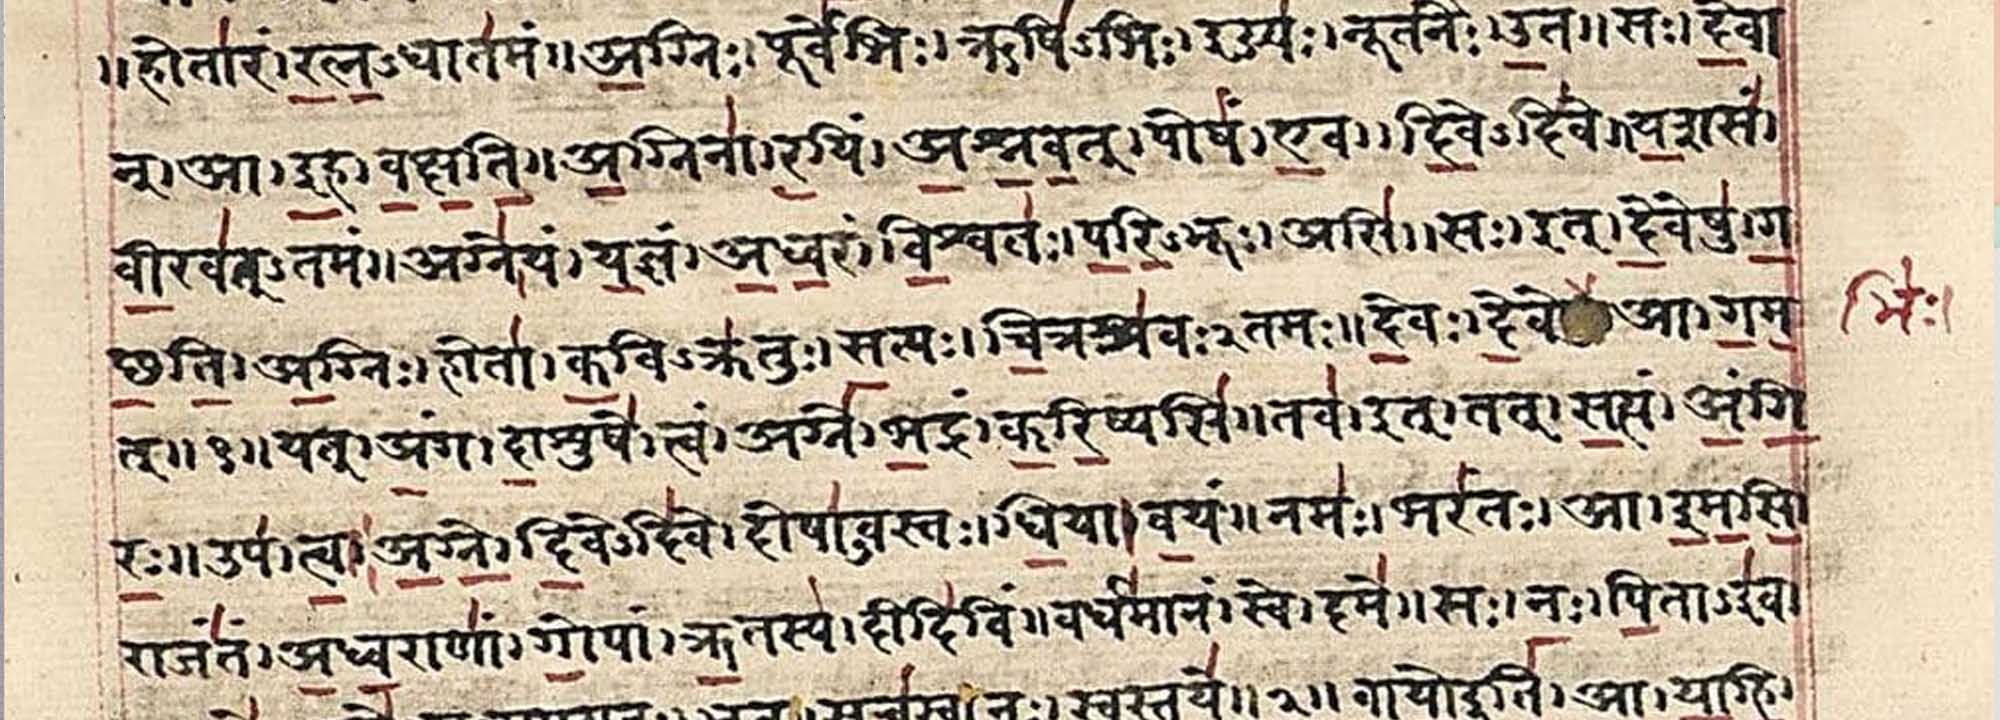 ॥होतारं।रत्नऽधातमं॥अग्निः।पूर्वेभिः।ऋषिऽभिः।इड्यः।नूतनैः।उत॥सः।देवा
न्।आ।इह।वक्षति॥अग्निना।रयिं।अश्नवत्।पोषं।एव।।दिवेऽदिवे॥यशसं।
वीरवत्ऽतमं॥अग्नेयं।यज्ञं।अध्वरं।विश्वतः।परिऽभूः।असि।।सः।इत्।देवेषु।ग
भिः।
छति।अग्निः।होता।कविऽक्रतुः।सत्यः।चित्रश्रवःऽतमः॥देवः।देवे आ।गम
त्॥१॥यत्।अंग।दाशुषे।त्वं।अग्ने।भद्रं।करिष्यसि॥तव।इत्।तत्।सत्यं।अंगि
रः॥उप।त्वा।अग्ने।दिवेऽदिवे।दोषाऽवस्तः।धिया।वयं॥नमः।भरंतः।आ।इमसि।
राजंतं।अध्वराणां।गोपां।ऋतस्य।दीदिविं॥वर्धमानं।स्वे।दमे॥सः।नः।पिताऽइव।
सचस्व।नः।स्वस्तये॥२॥वायो इति।आ।याहि।